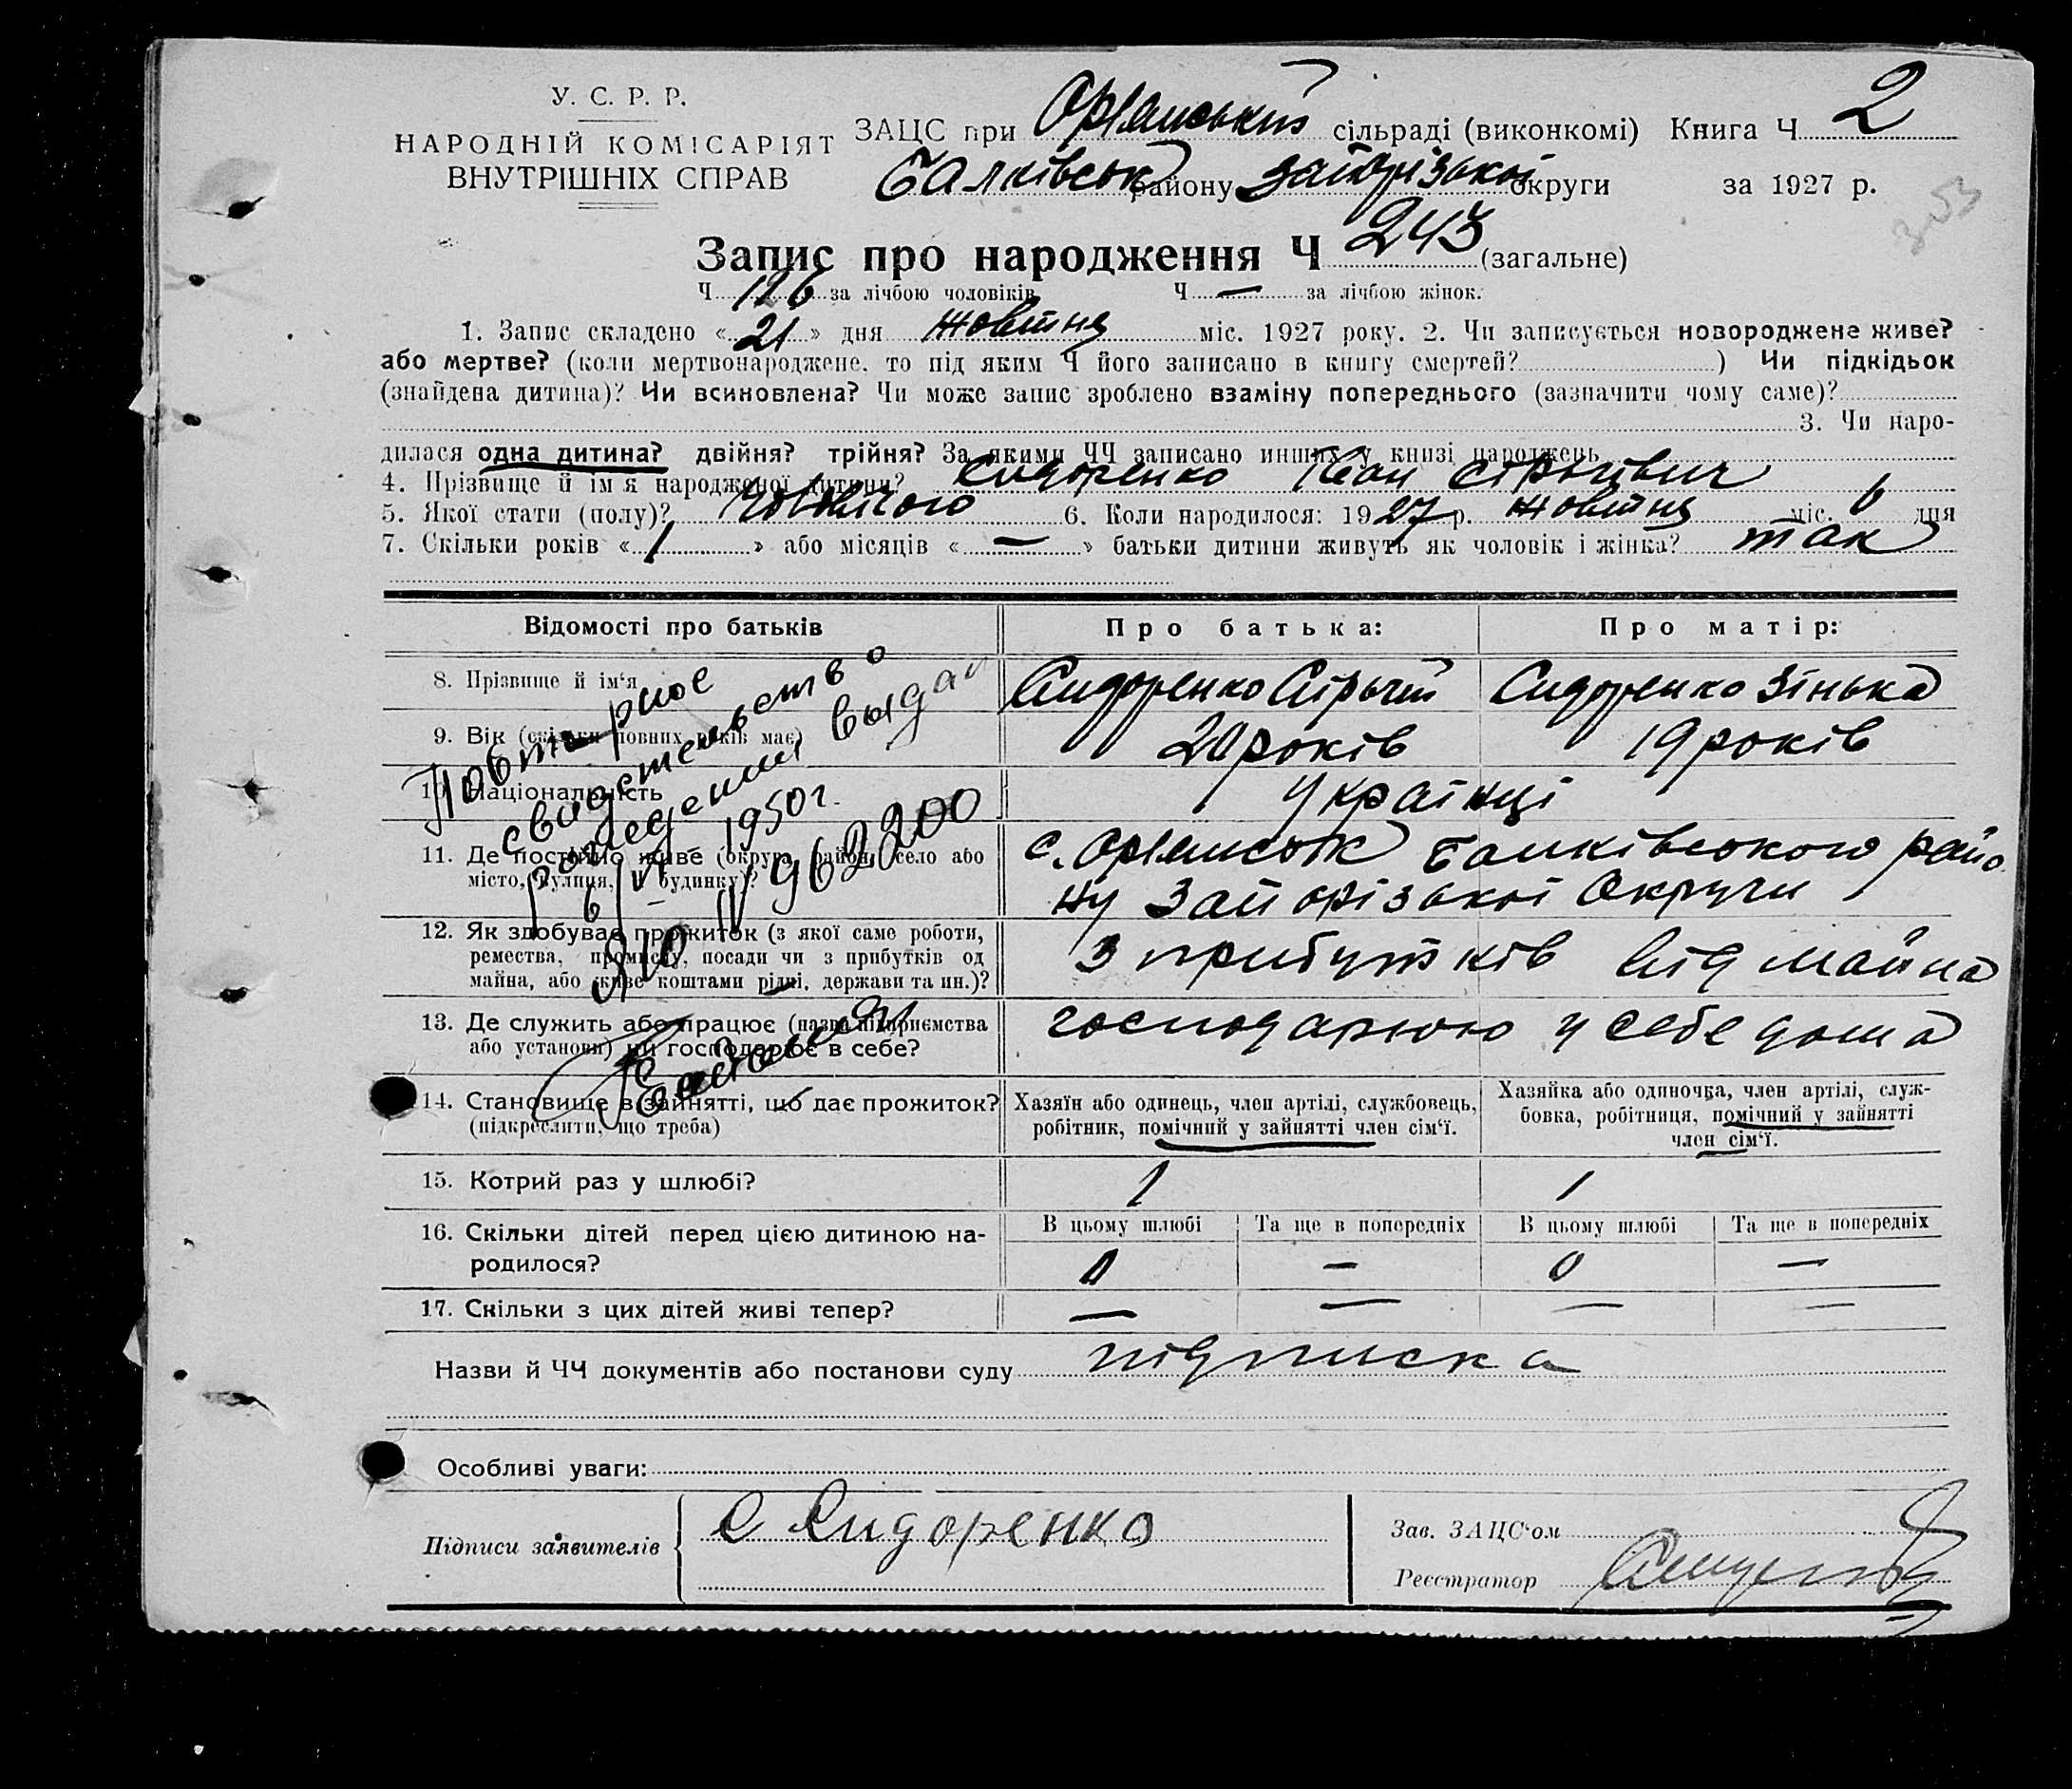 У. С. Р. Р.
НАРОДНІЙ КОМІСАРІЯТ
ВНУТРІШНІХ СПРАВ
ЗАЦС при Орлянський сільраді (виконкомі) Книга Ч 2
Балківськ району Запорізької округи за 1927 р.
353
Запис про народження Ч 243 (загальне)
Ч 126 за лічбою чоловіків Ч — за лічбою жінок.
1. Запис складено « 21 » дня жовтня міс. 1927 року. 2. Чи записується новороджене живе?
або мертве? (коли мертвонароджене, то під яким Ч його записано в книгу смертей? ) Чи підкідьок
(знайдена дитина)? Чи всиновлена? Чи може запис зроблено взаміну попереднього (зазначити чому саме)?
3. Чи наро-
дилася одна дитина? двійня? трійня? За якими ЧЧ записано инших у книзі народжень
4. Прізвище й ім'я народженої дитини? Сидоренко Іван
5. Якої стати (полу)? чоловічого 6. Коли народилося: 1927 р. жовтня міс. 6 дня
7. Скільки років « 1 » або місяців « — » батьки дитини живуть як чоловік і жінка? так
Відомості про батьків Про батька: Про матір:
8. Прізвище й ім'я Сидоренко Сидоренко Зінька
9. Вік (скільки повних років має) 20 років 19 років
10. Національність Українці
11. Де постійно живе (округа, район, село або
місто, вулиця, Ч будинку)?
с. Орлянськ Балківського райо
ну Запорізької Округи
12. Як здобуває прожиток (з якої саме роботи,
ремества, промислу, посади чи з прибутків од
майна, або живе коштами рідні, держави та ин.)?
З прибутків від майна
13. Де служить або працює (назва підприємства
або установи) чи господарює в себе?
господарюю у себе дома
14. Становище в зайнятті, що дає прожиток?
(підкреслити, що треба)
Хазяїн або одинець, член артілі, службовець,
робітник, помічний у зайнятті член сім'ї.
Хазяйка або одиночка, член артілі, служ-
бовка, робітниця, помічний у зайнятті
член сім'ї.
15. Котрий раз у шлюбі? 1 1
16. Скільки дітей перед цією дитиною на-
родилося?
В цьому шлюбі Та ще в попередніх В цьому шлюбі Та ще в попередніх
0 — 0 —
17. Скільки з цих дітей живі тепер? — — — —
Повторное
свидетельство
о рождении выдан
6/VI 1950 г.
962200
Назви й ЧЧ документів або постанови суду підписка
Особливі уваги:
Підписи заявителів С Сидоренко
Зав. ЗАЦС'ом
Реєстратор